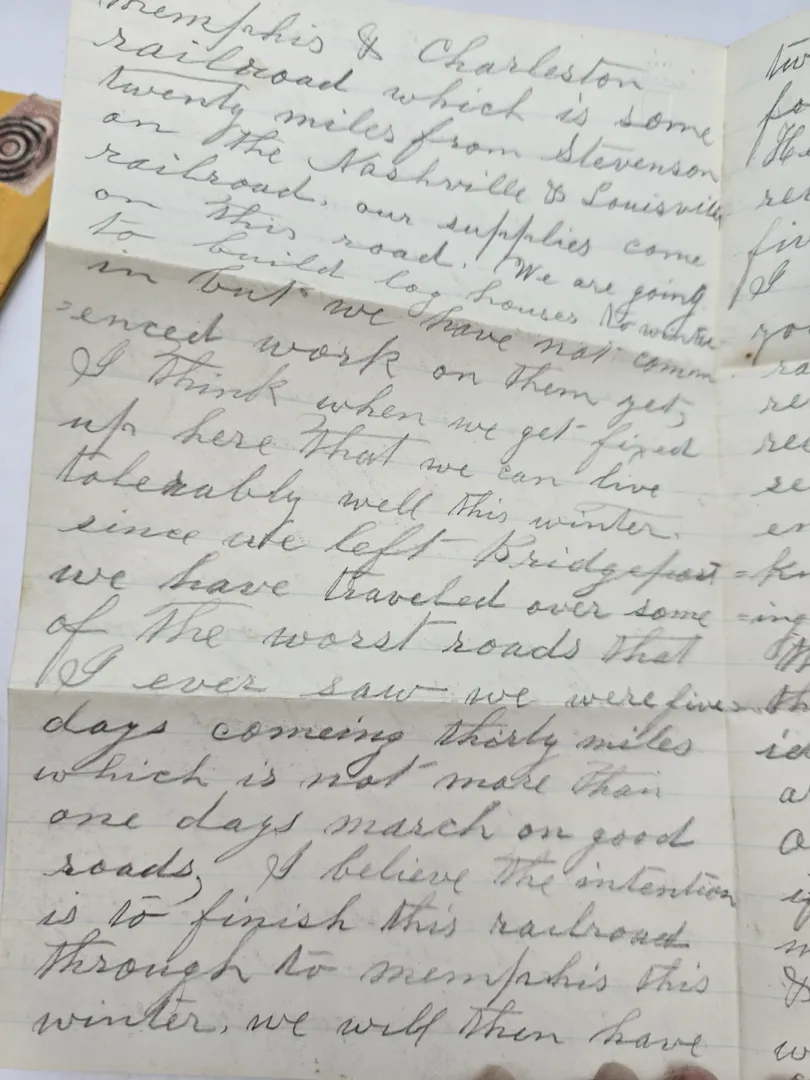 Memphis & Charleston
railroad which is some
twenty miles from Stevenson
on the Nashville & Louisville
railroad. our supplies come
on this road. We are going
to build log houses to winter
in but we have not comm
=enced work on them yet,
I think when we get fixed
up here that we can live
tolerably well this winter.
since we left Bridgeport
we have traveled over some
of the worst roads that
I ever saw we were five
days comeing thirty miles
which is not more than
one days march on good
roads, I believe the intention
is to finish this railroad
through to memphis this
winter, we will then have